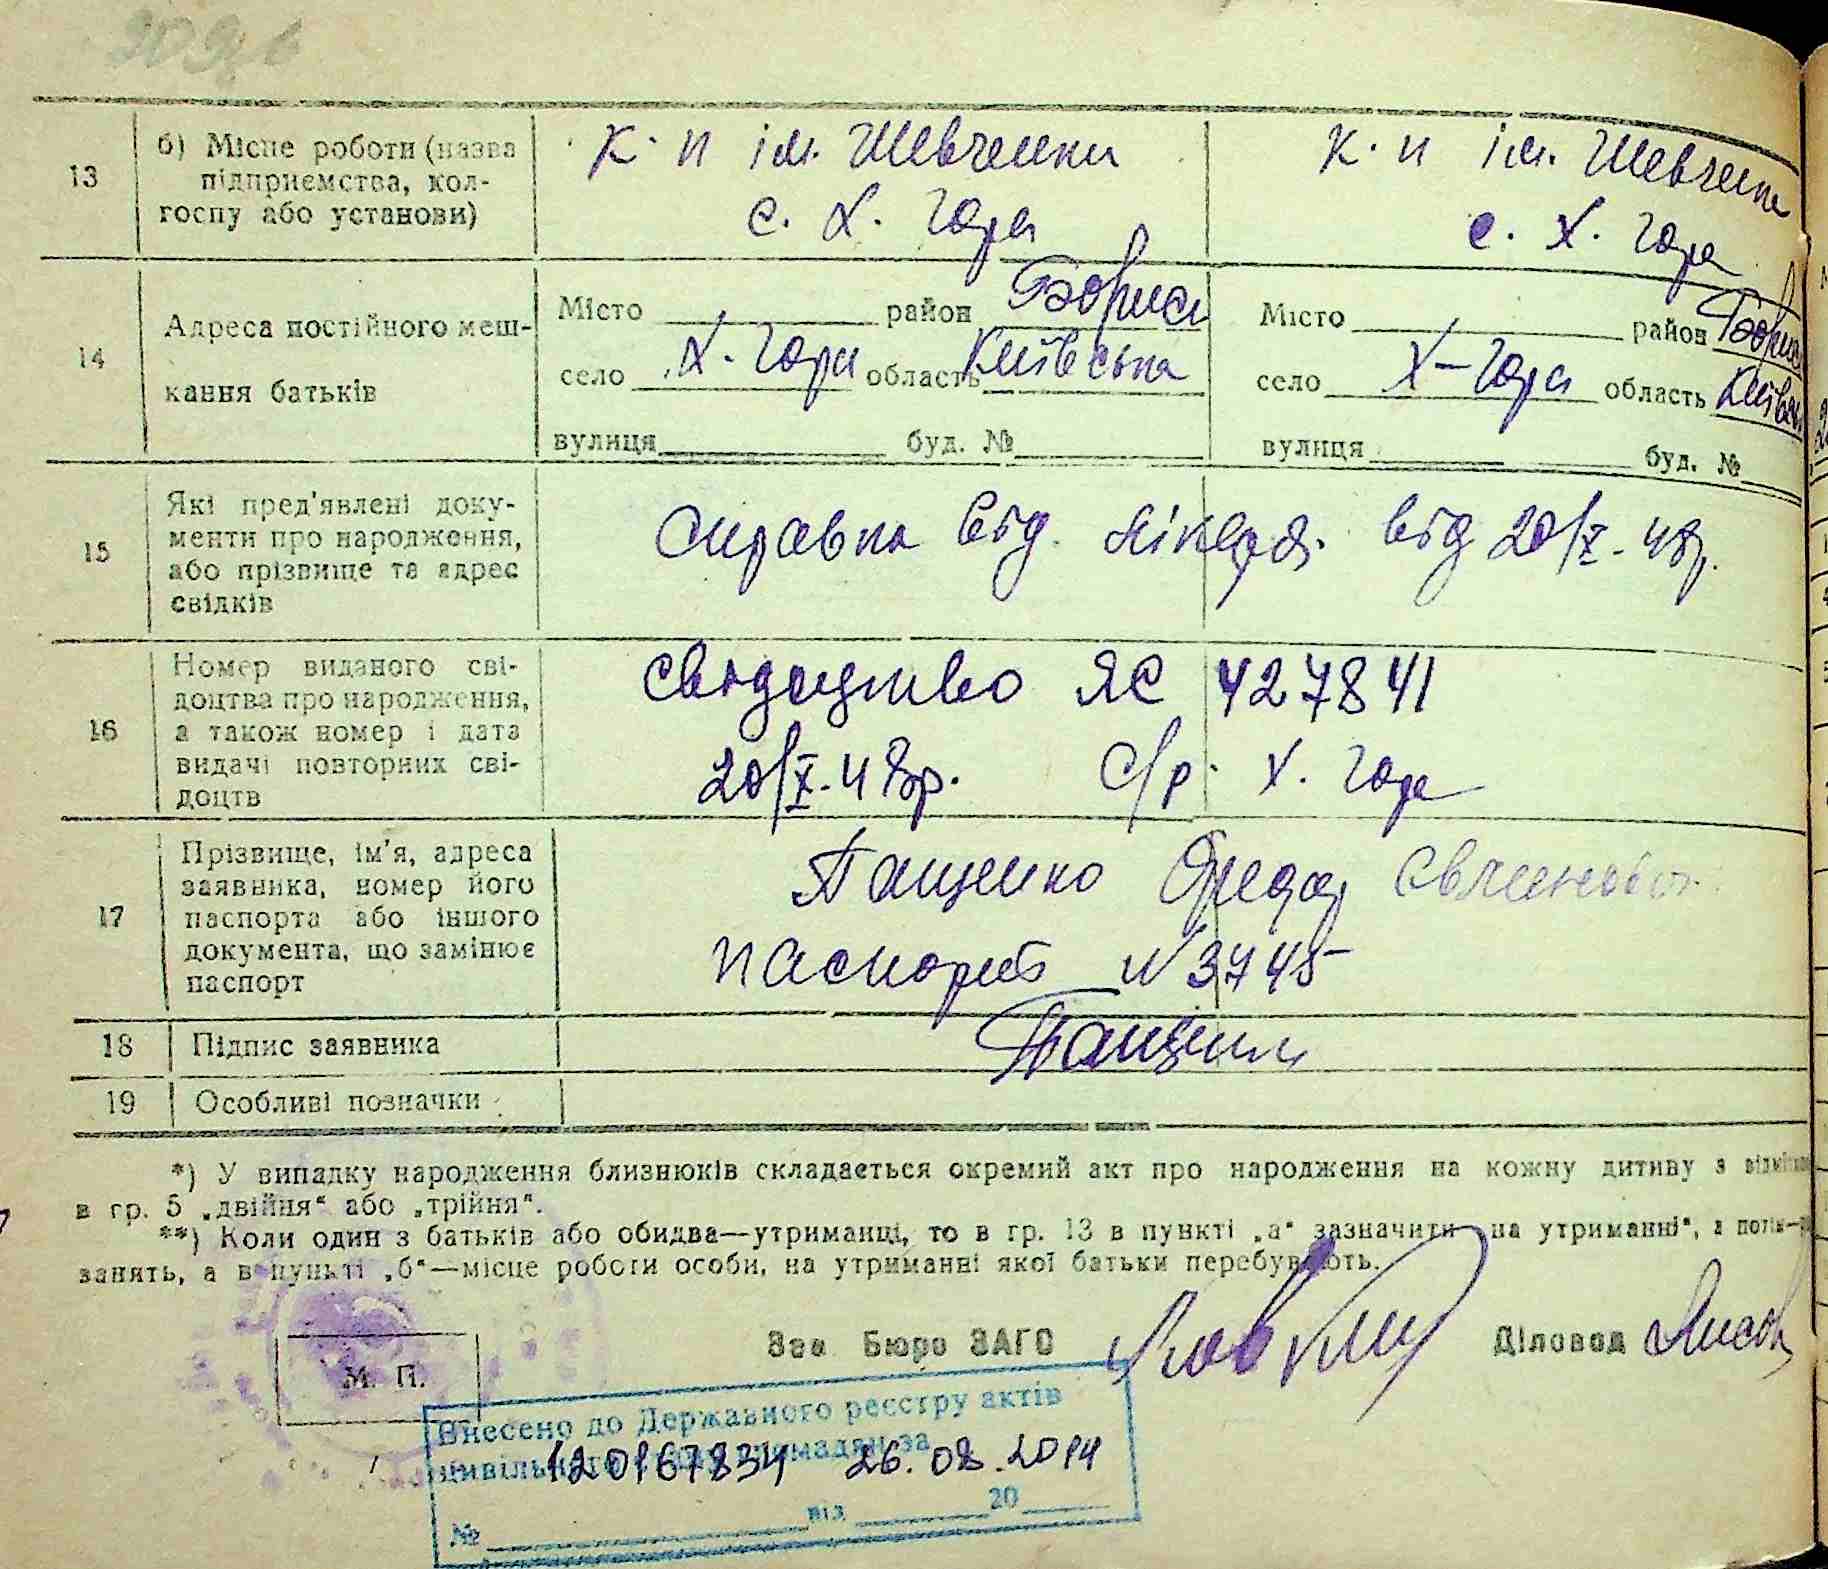 13
б) Місце роботи (назва підприємства, колгоспу або установи)
к-п ім. Шевченка
с. Х. Гора
к-п ім. Шевченка
с. Х. Гора
14
Адреса постійного мешкання батьків
Місто район Борисп
село Х. Гора область Київська
вулиця буд. №
Місто район Борис
село Х-Гора область Київсь
вулиця буд. №
15
Які пред'явлені документи про народження, або прізвище та адрес свідків
справка від лікаря від 20/X-48р.
16
Номер виданого свідоцтва про народження, а також номер і дата видачі повторних свідоцтв
свидоцтво ЯС 427841
20/X-48р. С/р. Х. Гора
17
Прізвище, ім'я, адреса заявника, номер його паспорта або іншого документа, що замінює паспорт
Пащенко Федор
паспорт №3745
18
Підпис заявника
Пащенко
19
Особливі позначки
*) У випадку народження близнюків складається окремий акт про народження на кожну дитину з відміткою
в гр. 5 „двійня“ або „трійня“.
**) Коли один з батьків або обидва—утриманці, то в гр. 13 в пункті „а“ зазначити на утриманні“, а потім—
занять, а в пункті „б“—місце роботи особи, на утриманні якої батьки перебувають.
Зав Бюро ЗАГС Діловод
М. П.
Внесено до Державного реєстру актів
цивільного стану громадян за
120167834 26.08.2014
№ від 20